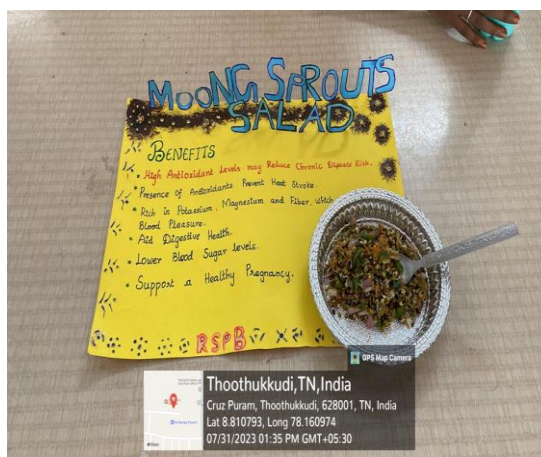 MOONG SPROUTS
SALAD
BENEFITS
• High Antioxidant Levels may Reduce Chronic Disease Risk.
• Presence of Antioxidants Prevent Heat Stroke.
• Rich in Potassium, Magnesium and Fiber, which
Blood Pleasure.
• Aid Digestive Health.
• Lower Blood Sugar levels.
• Support a Healthy Pregnancy.
RSPB
GPS Map Camera
Thoothukkudi,TN,India
Cruz Puram, Thoothukkudi, 628001, TN, India
Lat 8.810793, Long 78.160974
07/31/2023 01:35 PM GMT+05:30